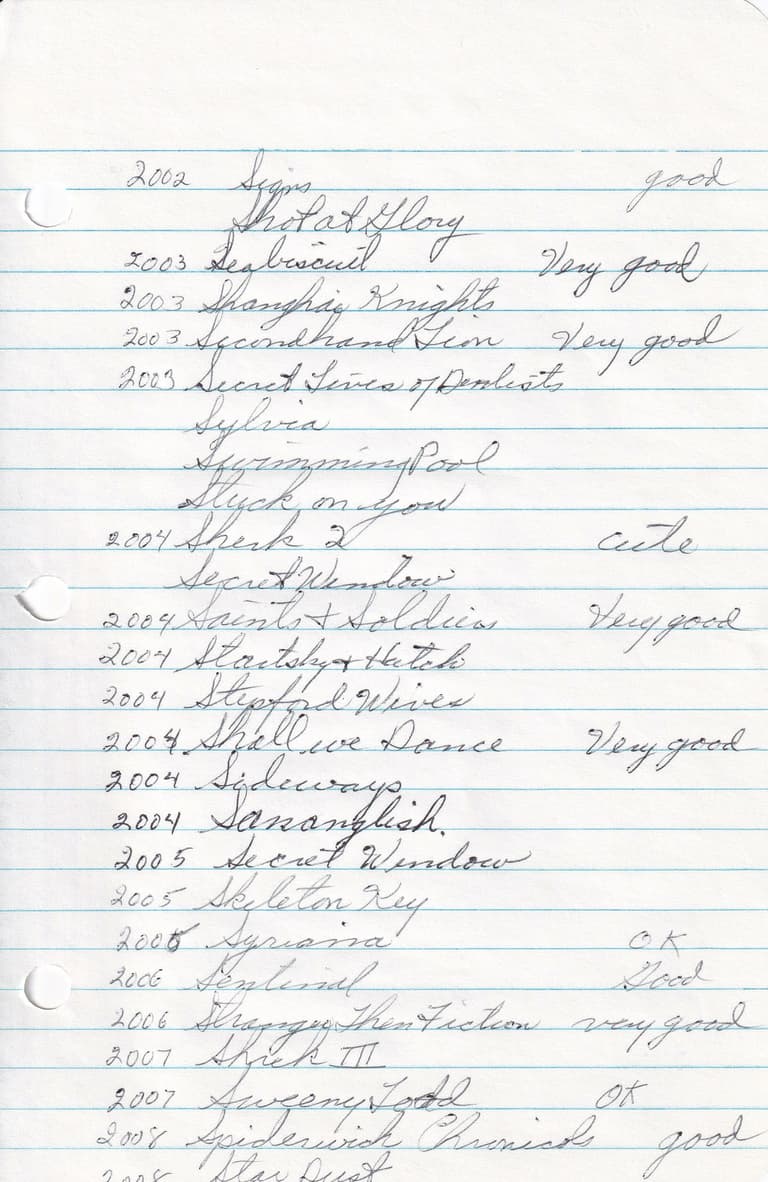 2002 Signs good
Shot at Glory
2003 Seabiscuit Very good
2003 Shanghai Knights
2003 Secondhand Lion Very good
2003 Secret Lives of Dentists
Sylvia
Swimming Pool
Stuck on you
2004 Sherk 2 cute
Secret Window
2004 Saints + Soldiers Very good
2004 Startsky + Hutch
2004 Stepford Wives
2004 Shall we Dance Very good
2004 Sideways
2004
2005 Secret Window
2005 Skeleton Key
2005 Syriana OK
2006 Sentinal Good
2006 Stranger Then Fiction very good
2007 Shrek III
2007 Sweeny Todd OK
2008 Spiderwick Chronicols good
2008 Star Dust